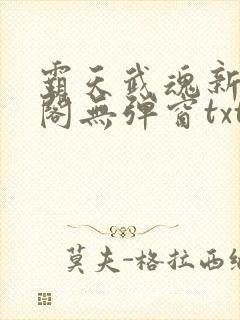 霸天武魂新
閣無弹窗txt
莫夫-格拉西緒